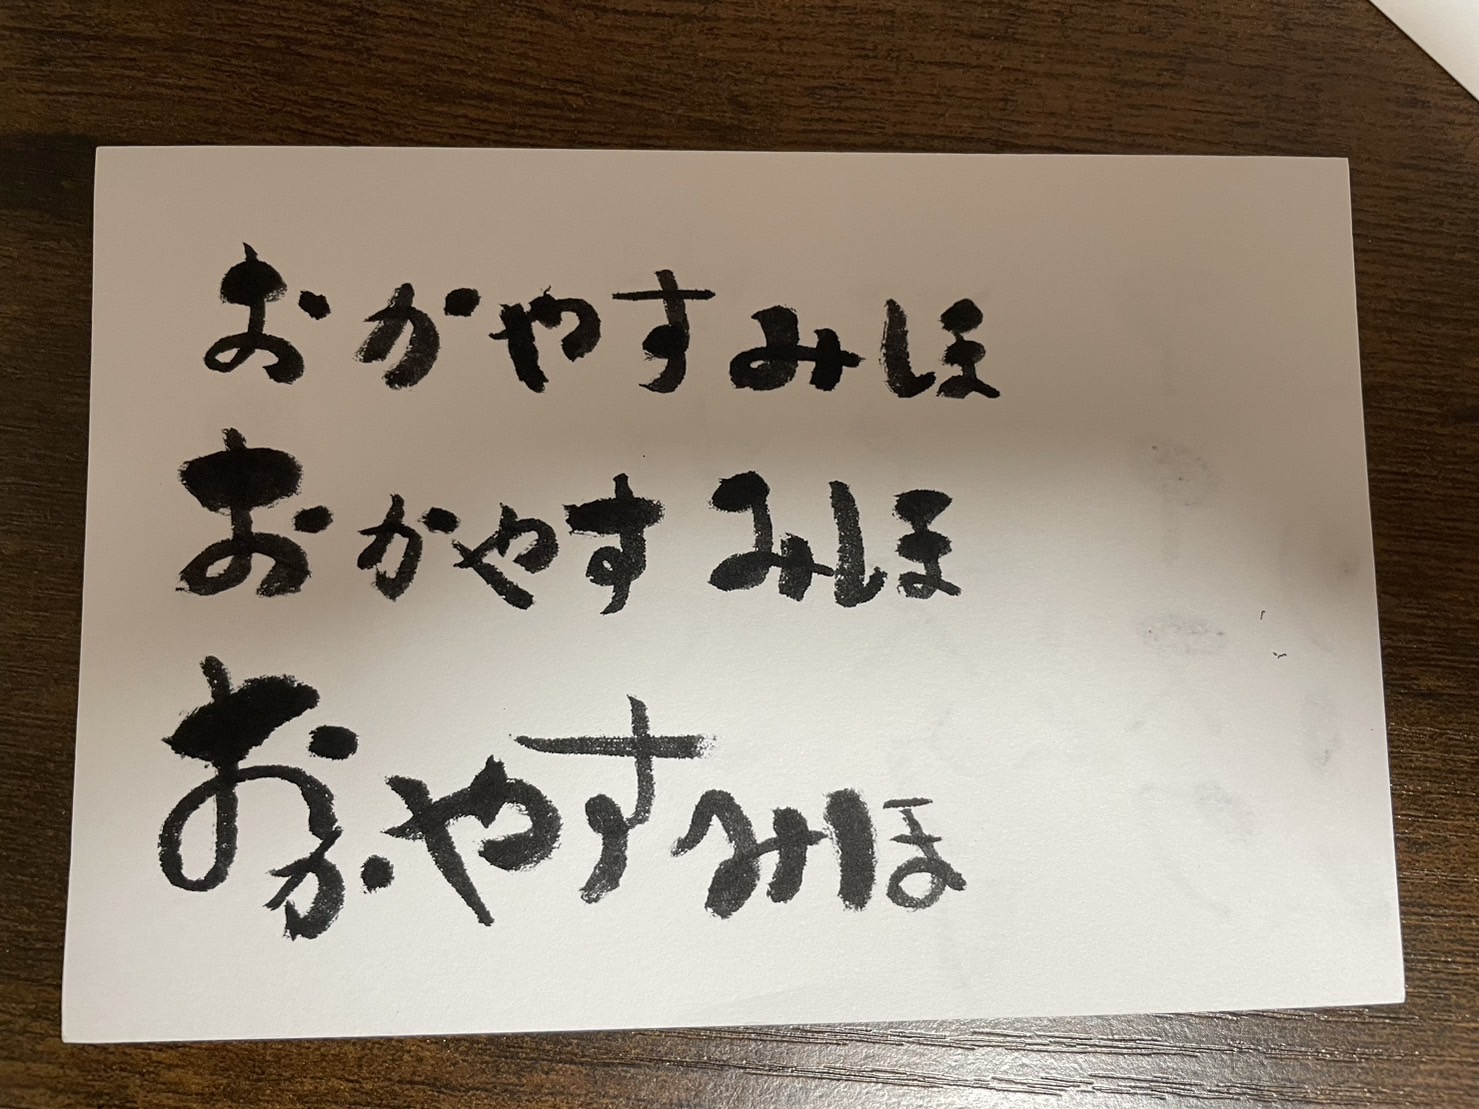 おかやすみほ
おかやすみほ
おかやすみほ